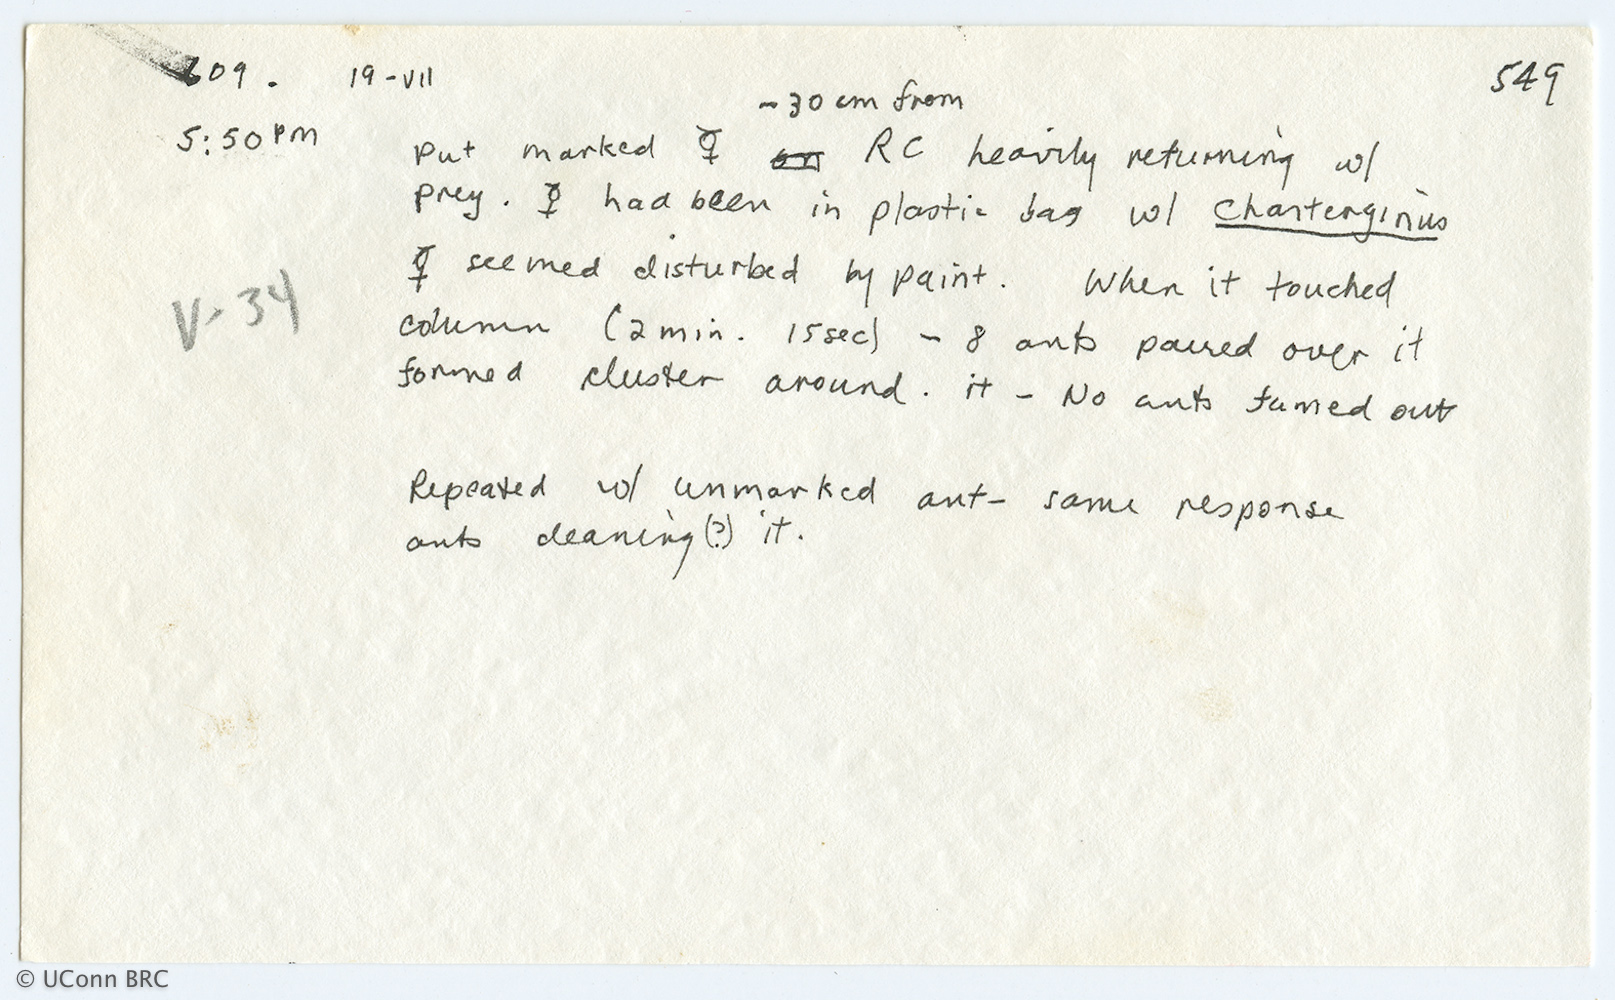 609. 19-VII 549
~30 cm from
5:50 PM Put marked ☿ on RC heavily returning w/
prey. ☿ had been in plastic bag w/ Charterginus
☿ seemed disturbed by paint. When it touched
V-34
column (2 min. 15 sec) ~ 8 ants paused over it
formed cluster around. it - No ants turned out
Repeated w/ unmarked ant- same response
ants cleaning(?) it.
© UConn BRC